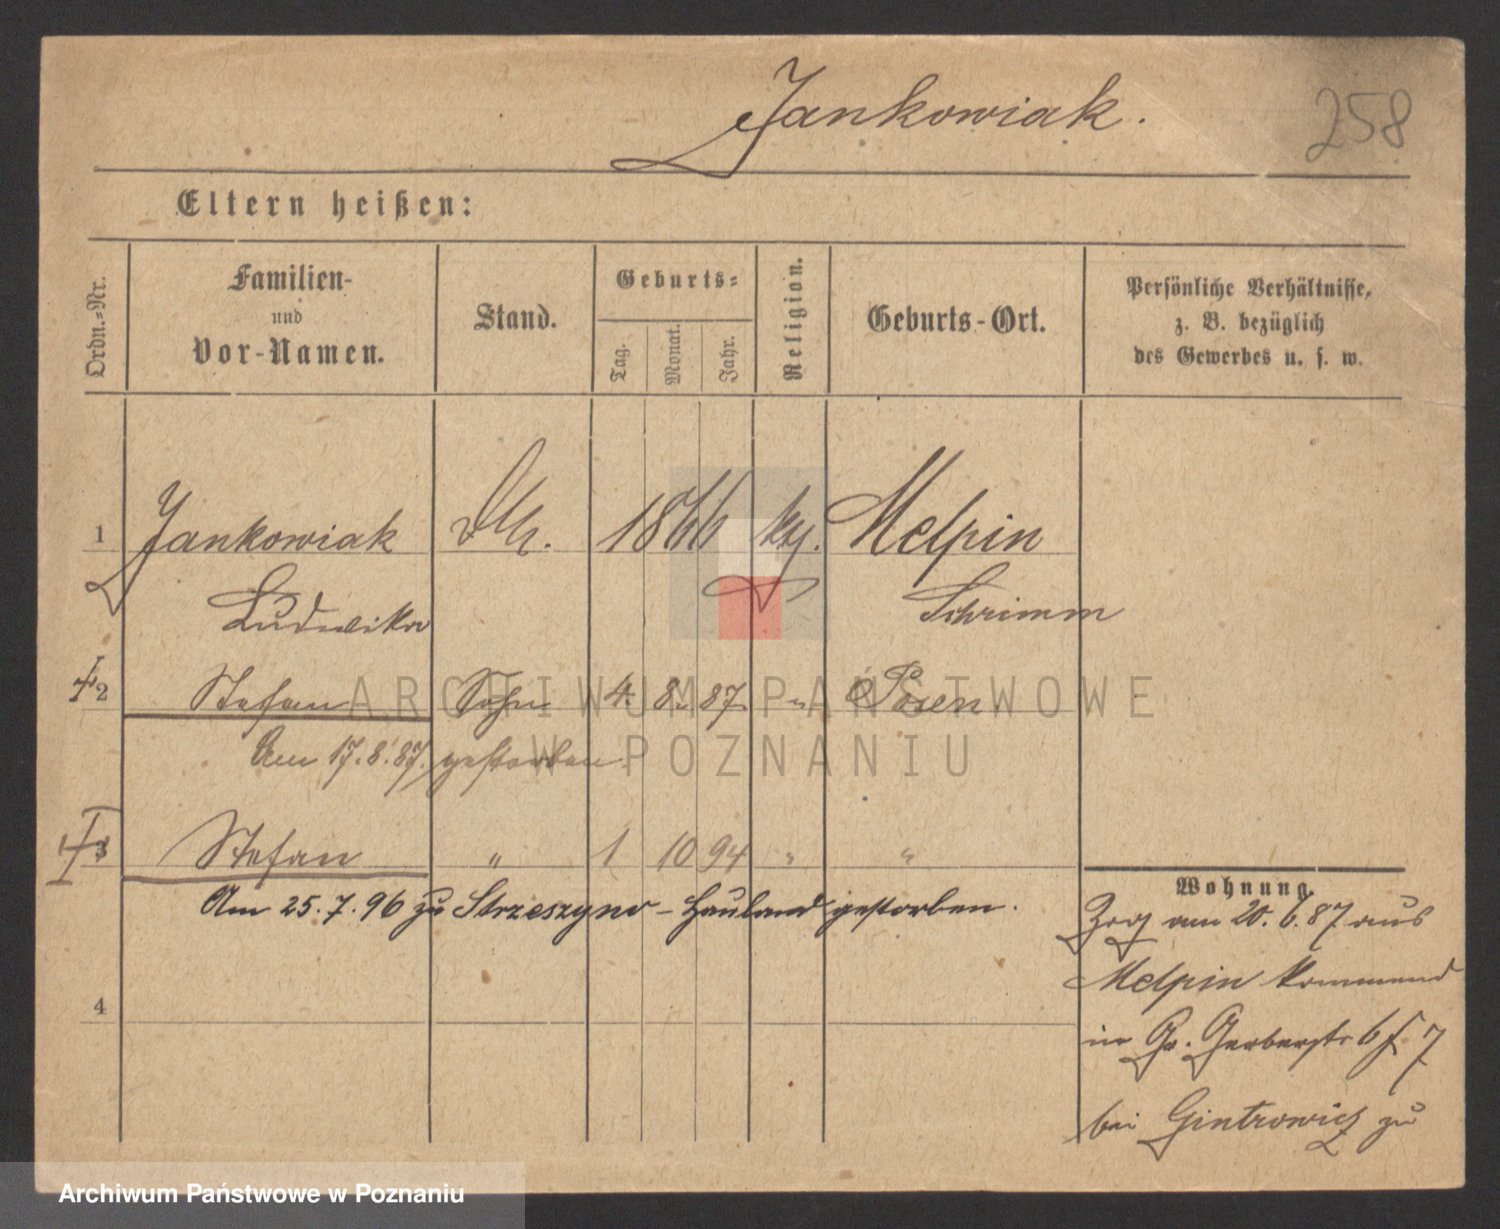 Jankowiak.
258
Eltern heißen:
Ordn.-Nr.
Familien-
und
Vor-Namen.
Stand.
Geburts-
Tag.
Monat.
Jahr.
Religion.
Geburts-Ort.
Persönliche Verhältnisse,
z. B. bezüglich
des Gewerbes u. s. w.
1 Jankowiak 1866 Melpin
Ludwika Schrimm
2 Stefan Sohn 4. 8. 87. " Posen
Am 17.8.87. gestorben.
3 Stefan " 1 10 94 " "
Am 25.7.96 zu Strzeszyno-Hauland gestorben.
4
Wohnung.
Zog am 20.6.87 aus
Melpin kommend
in Gr. Gerberstr 6 f 7
bei Gintrowicz zu
ARCHIWUM PAŃSTWOWE
W POZNANIU
Archiwum Państwowe w Poznaniu